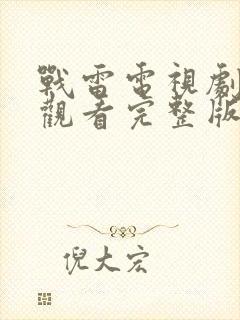 戰雷電視劇
觀看完整版
倪大宏